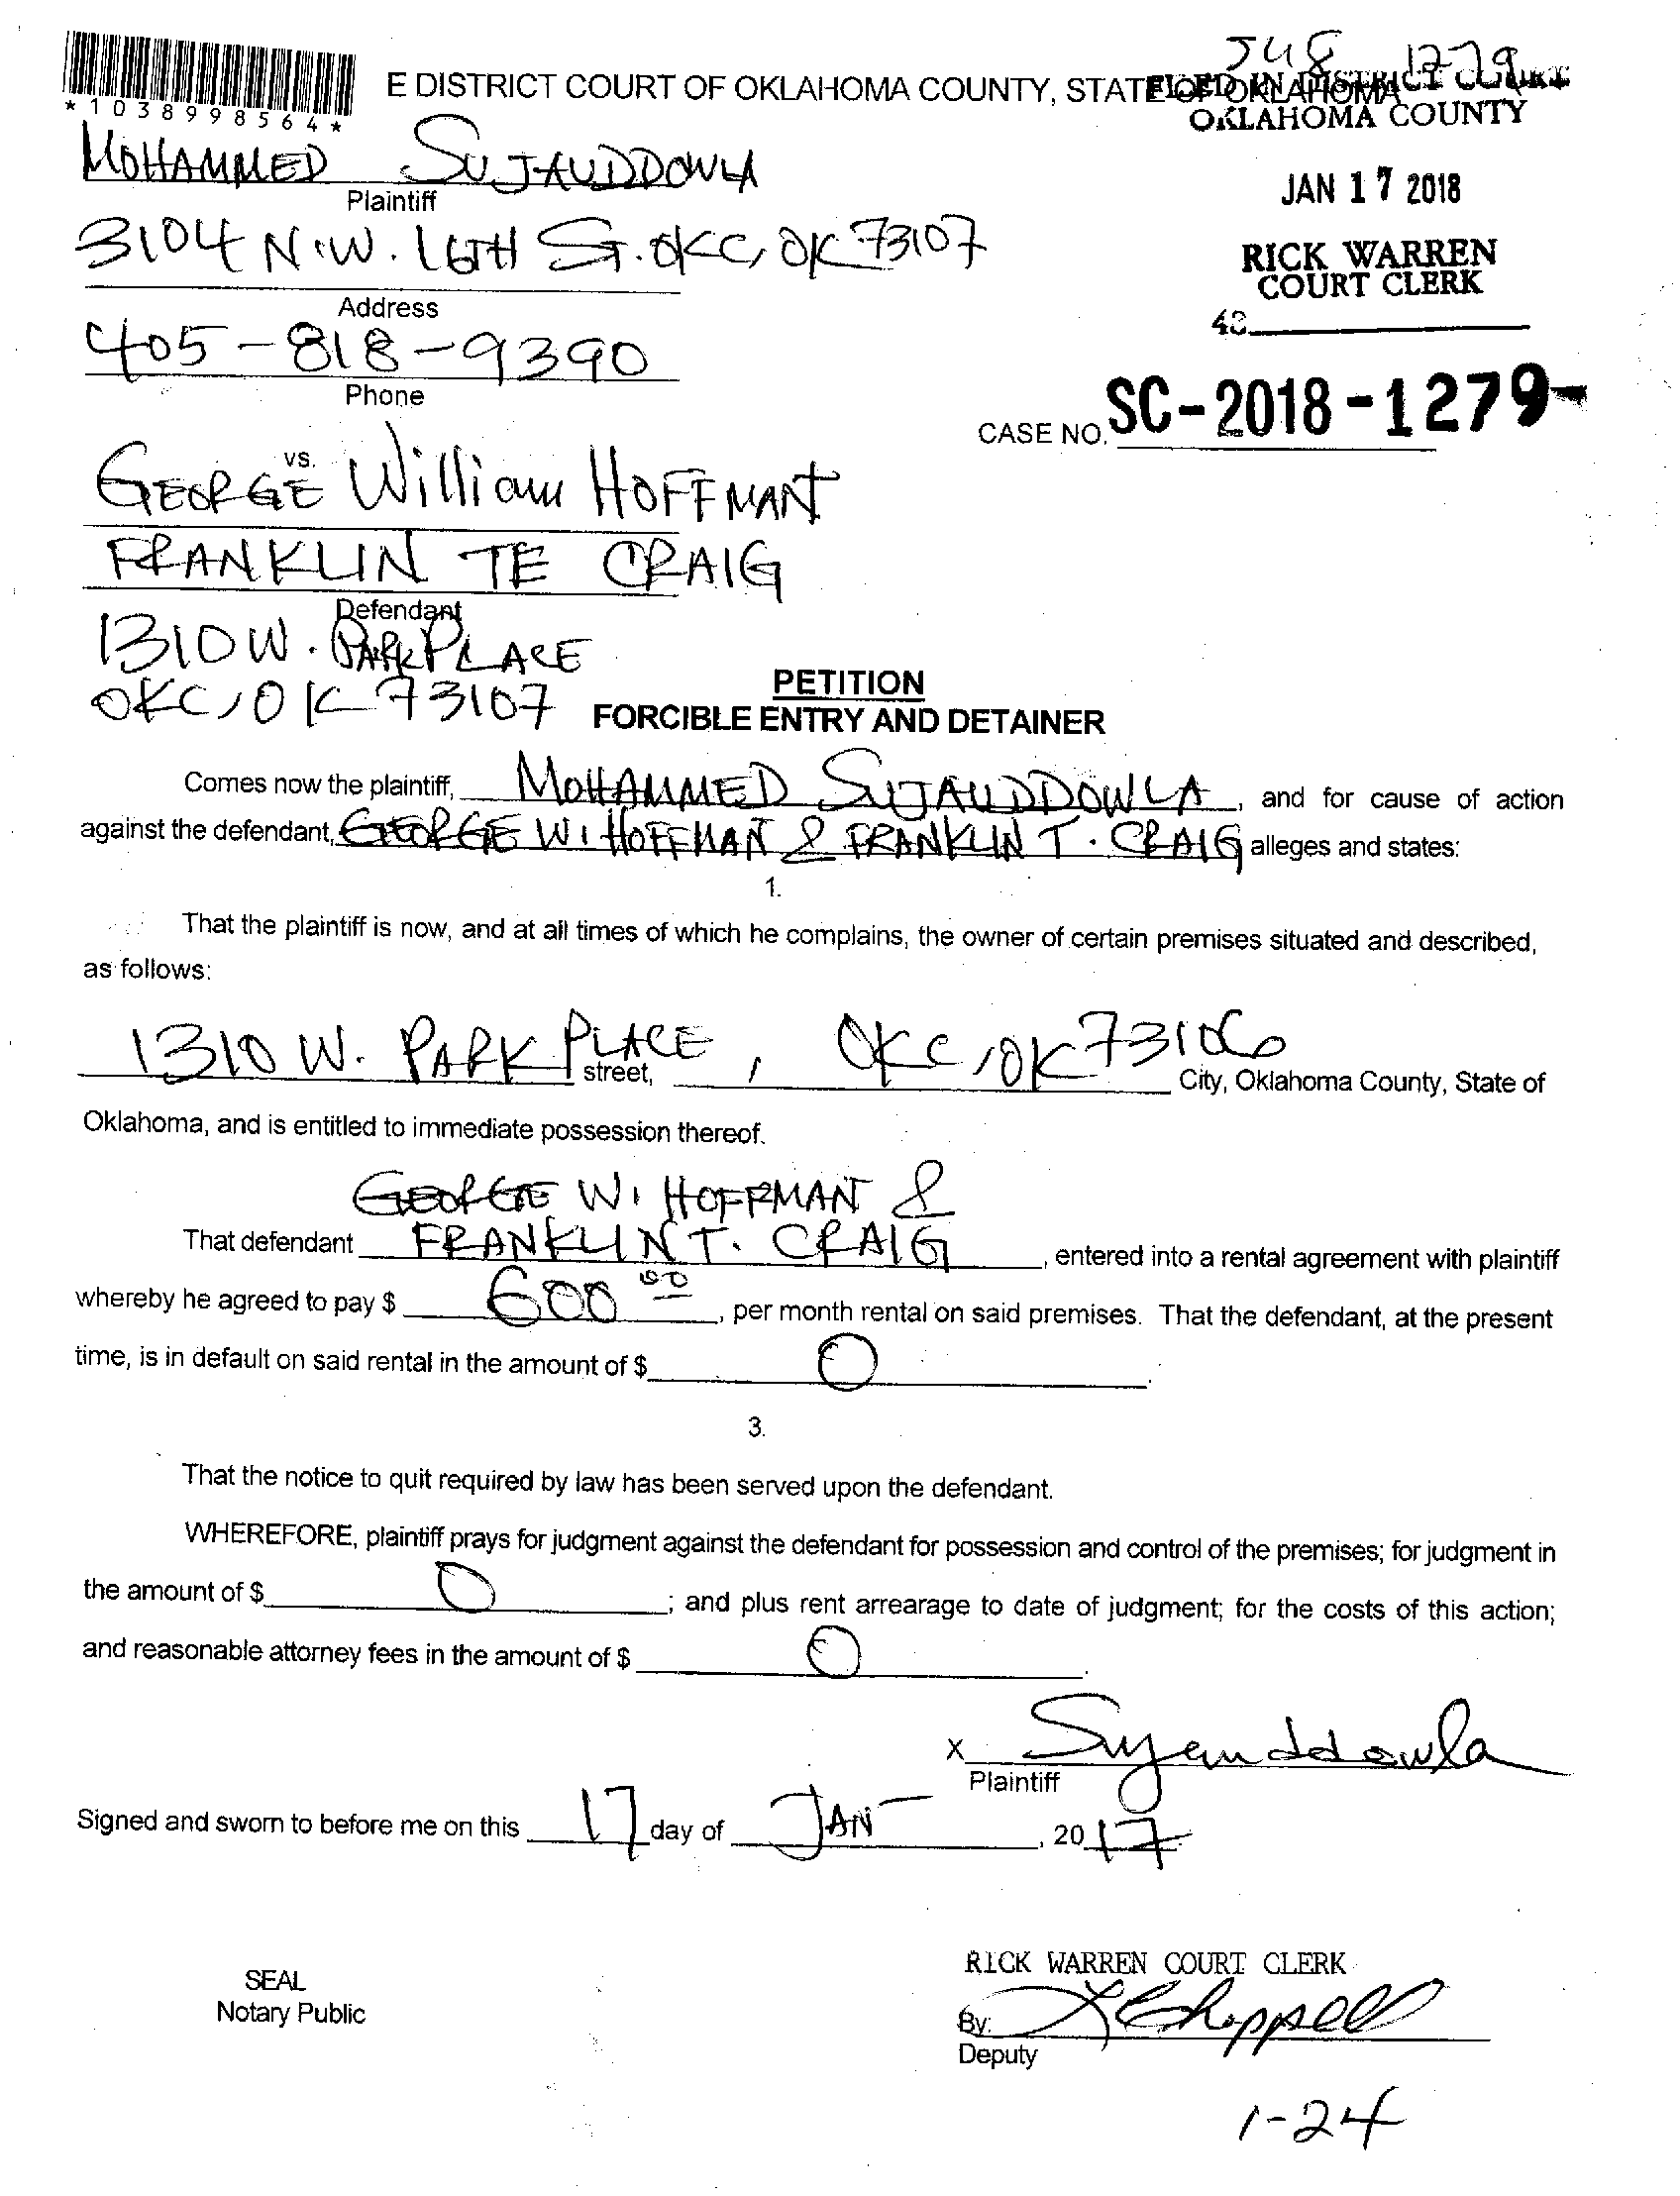 E DISTRICT COURT OF OKLAHOMA COUNTY, STATE OF OKLAHOMA
FILED IN DISTRICT COURT
OKLAHOMA COUNTY
*1038998564*
MOHAMMED SUJAUDDOWLA
Plaintiff
JAN 17 2018
3104 N.W. 16TH ST. OKC, OK 73107
RICK WARREN
COURT CLERK
Address
405-818-9390
Phone
CASE NO. SC-2018-1279-
vs.
GEORGE William HOFFMAN
FRANKLIN TE CRAIG
Defendant
1310 W. PARK PLACE
OKC, OK 73107
PETITION
FORCIBLE ENTRY AND DETAINER
Comes now the plaintiff, MOHAMMED SUJAUDDOWLA, and for cause of action
against the defendant, GEORGE W. HOFFMAN & FRANKLIN T. CRAIG alleges and states:
1.
That the plaintiff is now, and at all times of which he complains, the owner of certain premises situated and described,
as follows:
1310 W. PARK PLACE street, , OKC, OK 73106 City, Oklahoma County, State of
Oklahoma, and is entitled to immediate possession thereof.
GEORGE W. HOFFMAN &
That defendant FRANKLIN T. CRAIG, entered into a rental agreement with plaintiff
whereby he agreed to pay $ 600 00, per month rental on said premises. That the defendant, at the present
time, is in default on said rental in the amount of $ 0.
3.
That the notice to quit required by law has been served upon the defendant.
WHEREFORE, plaintiff prays for judgment against the defendant for possession and control of the premises; for judgment in
the amount of $ 0; and plus rent arrearage to date of judgment; for the costs of this action;
and reasonable attorney fees in the amount of $ 0.
X Sujauddowla
Plaintiff
Signed and sworn to before me on this 17 day of JAN, 2017
RICK WARREN COURT CLERK
SEAL
Notary Public
By: Chappell
Deputy
1-24